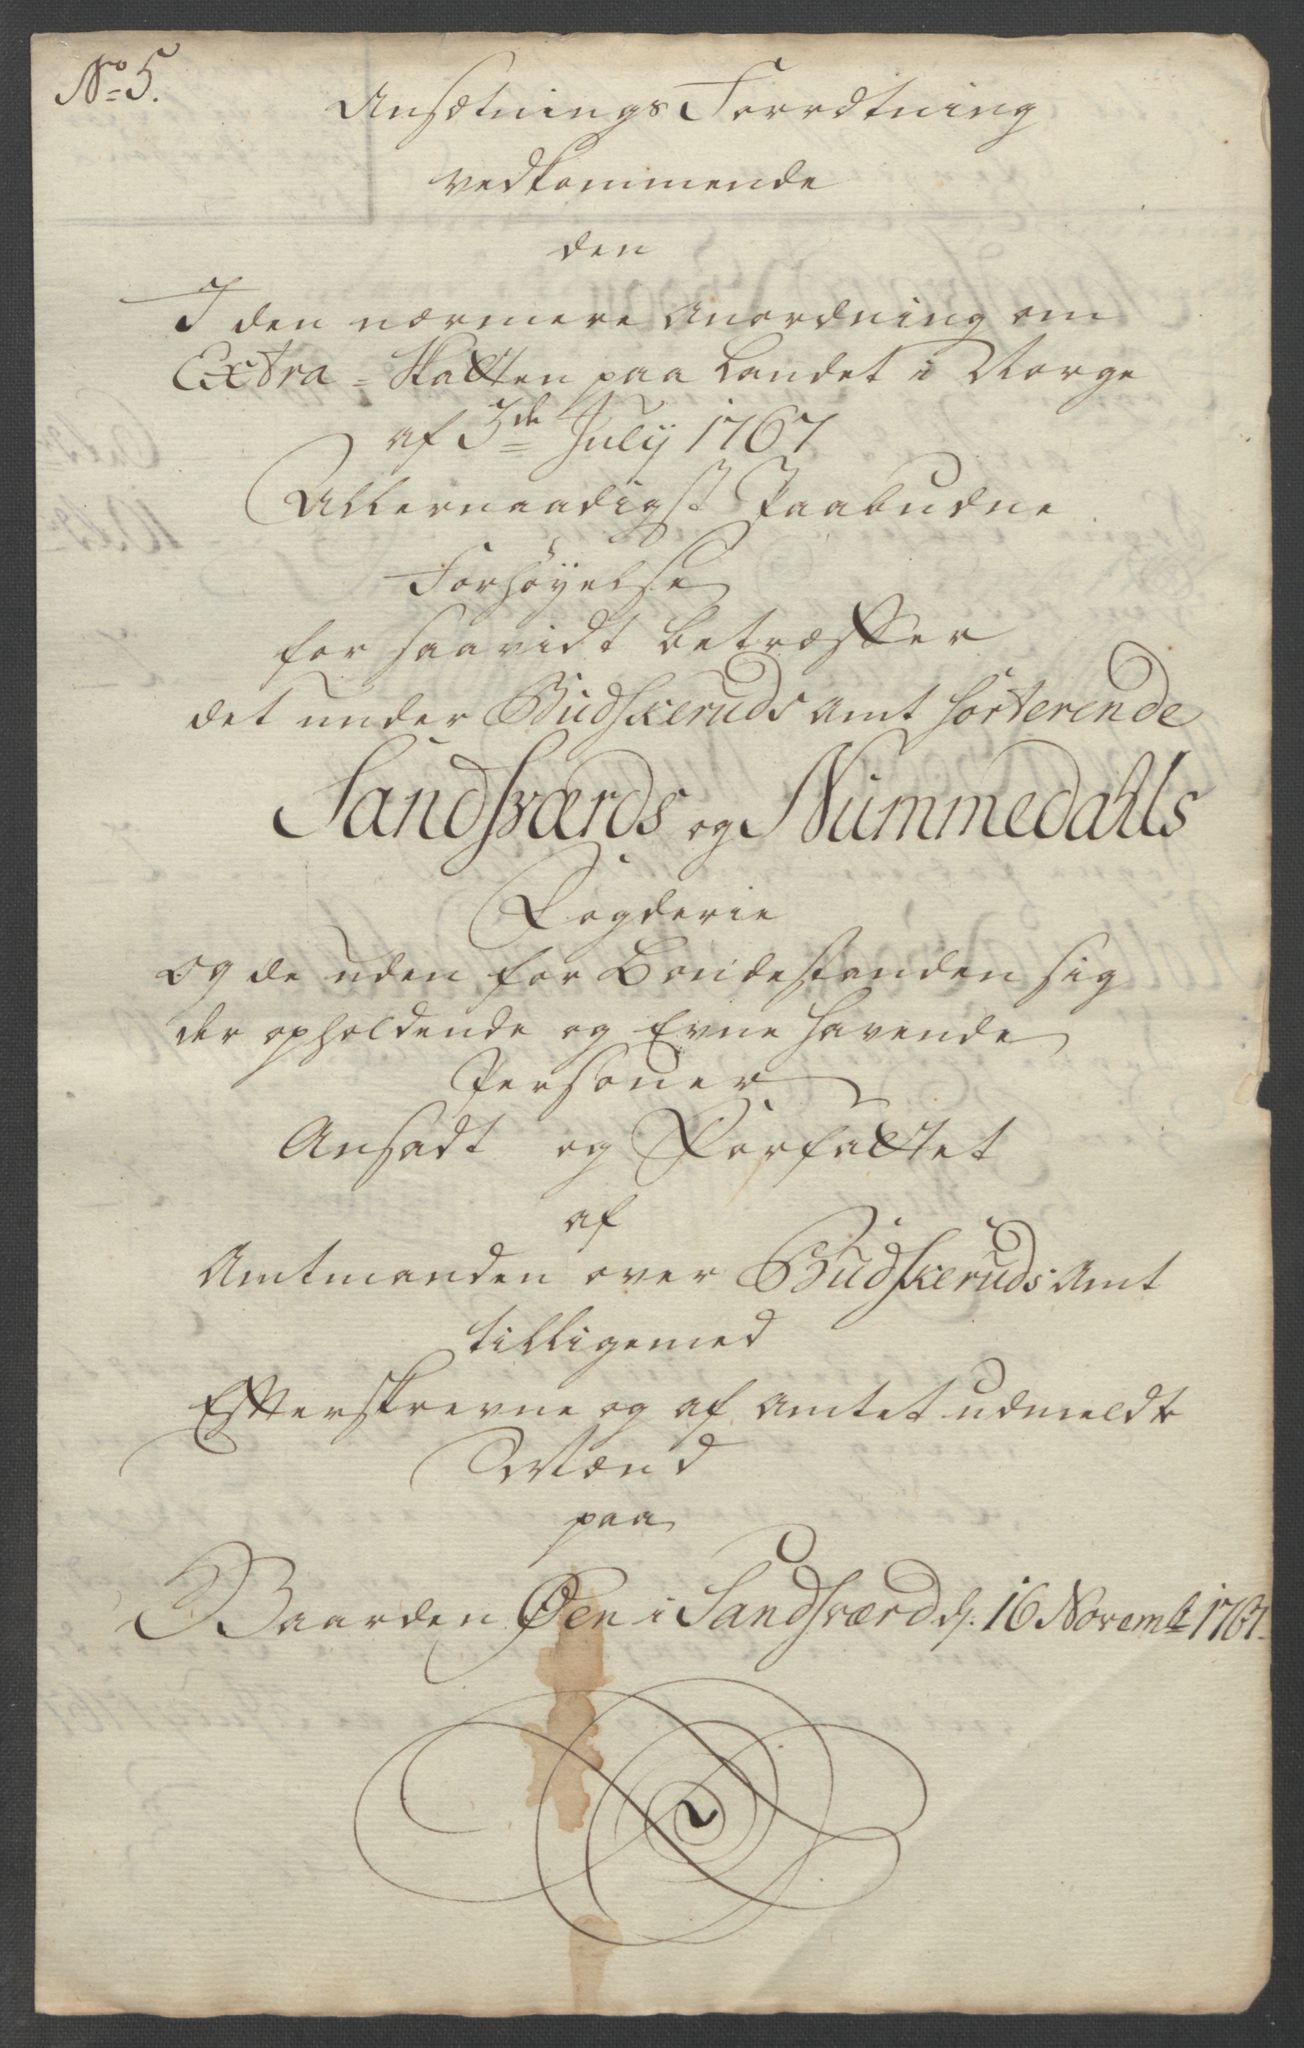 No 5.
Ansætnings Forrætning
vedkommende
den
I den nærmere Anordning om
Extra-Skatten paa Landet i Norge
af 3de July 1767
Allernaadigst Paabudne
Forhøyelse
for saavidt betræffer
det under Budskeruds Amt sorterende
Sandsværds og Nummedahls
Fogderie
og de uden for Bondestanden sig
der opholdende og Evne havende
Personer
Ansadt og Forfattet
af
Amtmanden over Budskeruds Amt
tilligemed
Efterskrevne og af Amtet udmeldte
Mænd
paa
Gaarden Øen i Sandsværd d. 16 Novembr 1767.